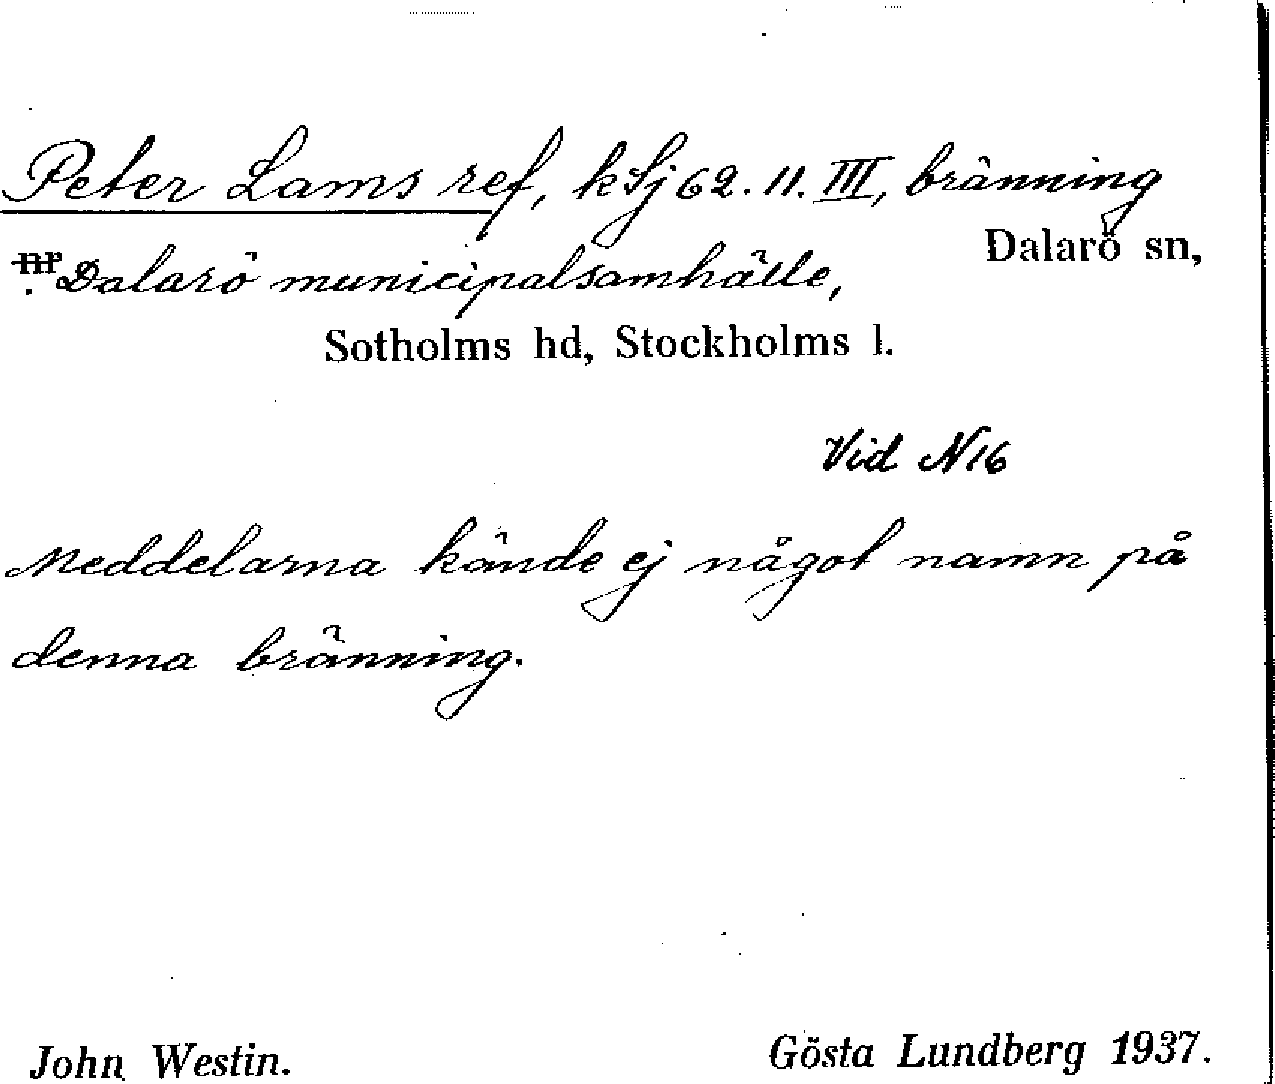 Peter Lams ref, kSj 62. 11. III, bränning
Dalarö sn,
Dalarö municipalsamhälle,
Sotholms hd, Stockholms l.
Vid N16
Meddelarna kände ej något namn på
denna bränning.
John Westin. Gösta Lundberg 1937.